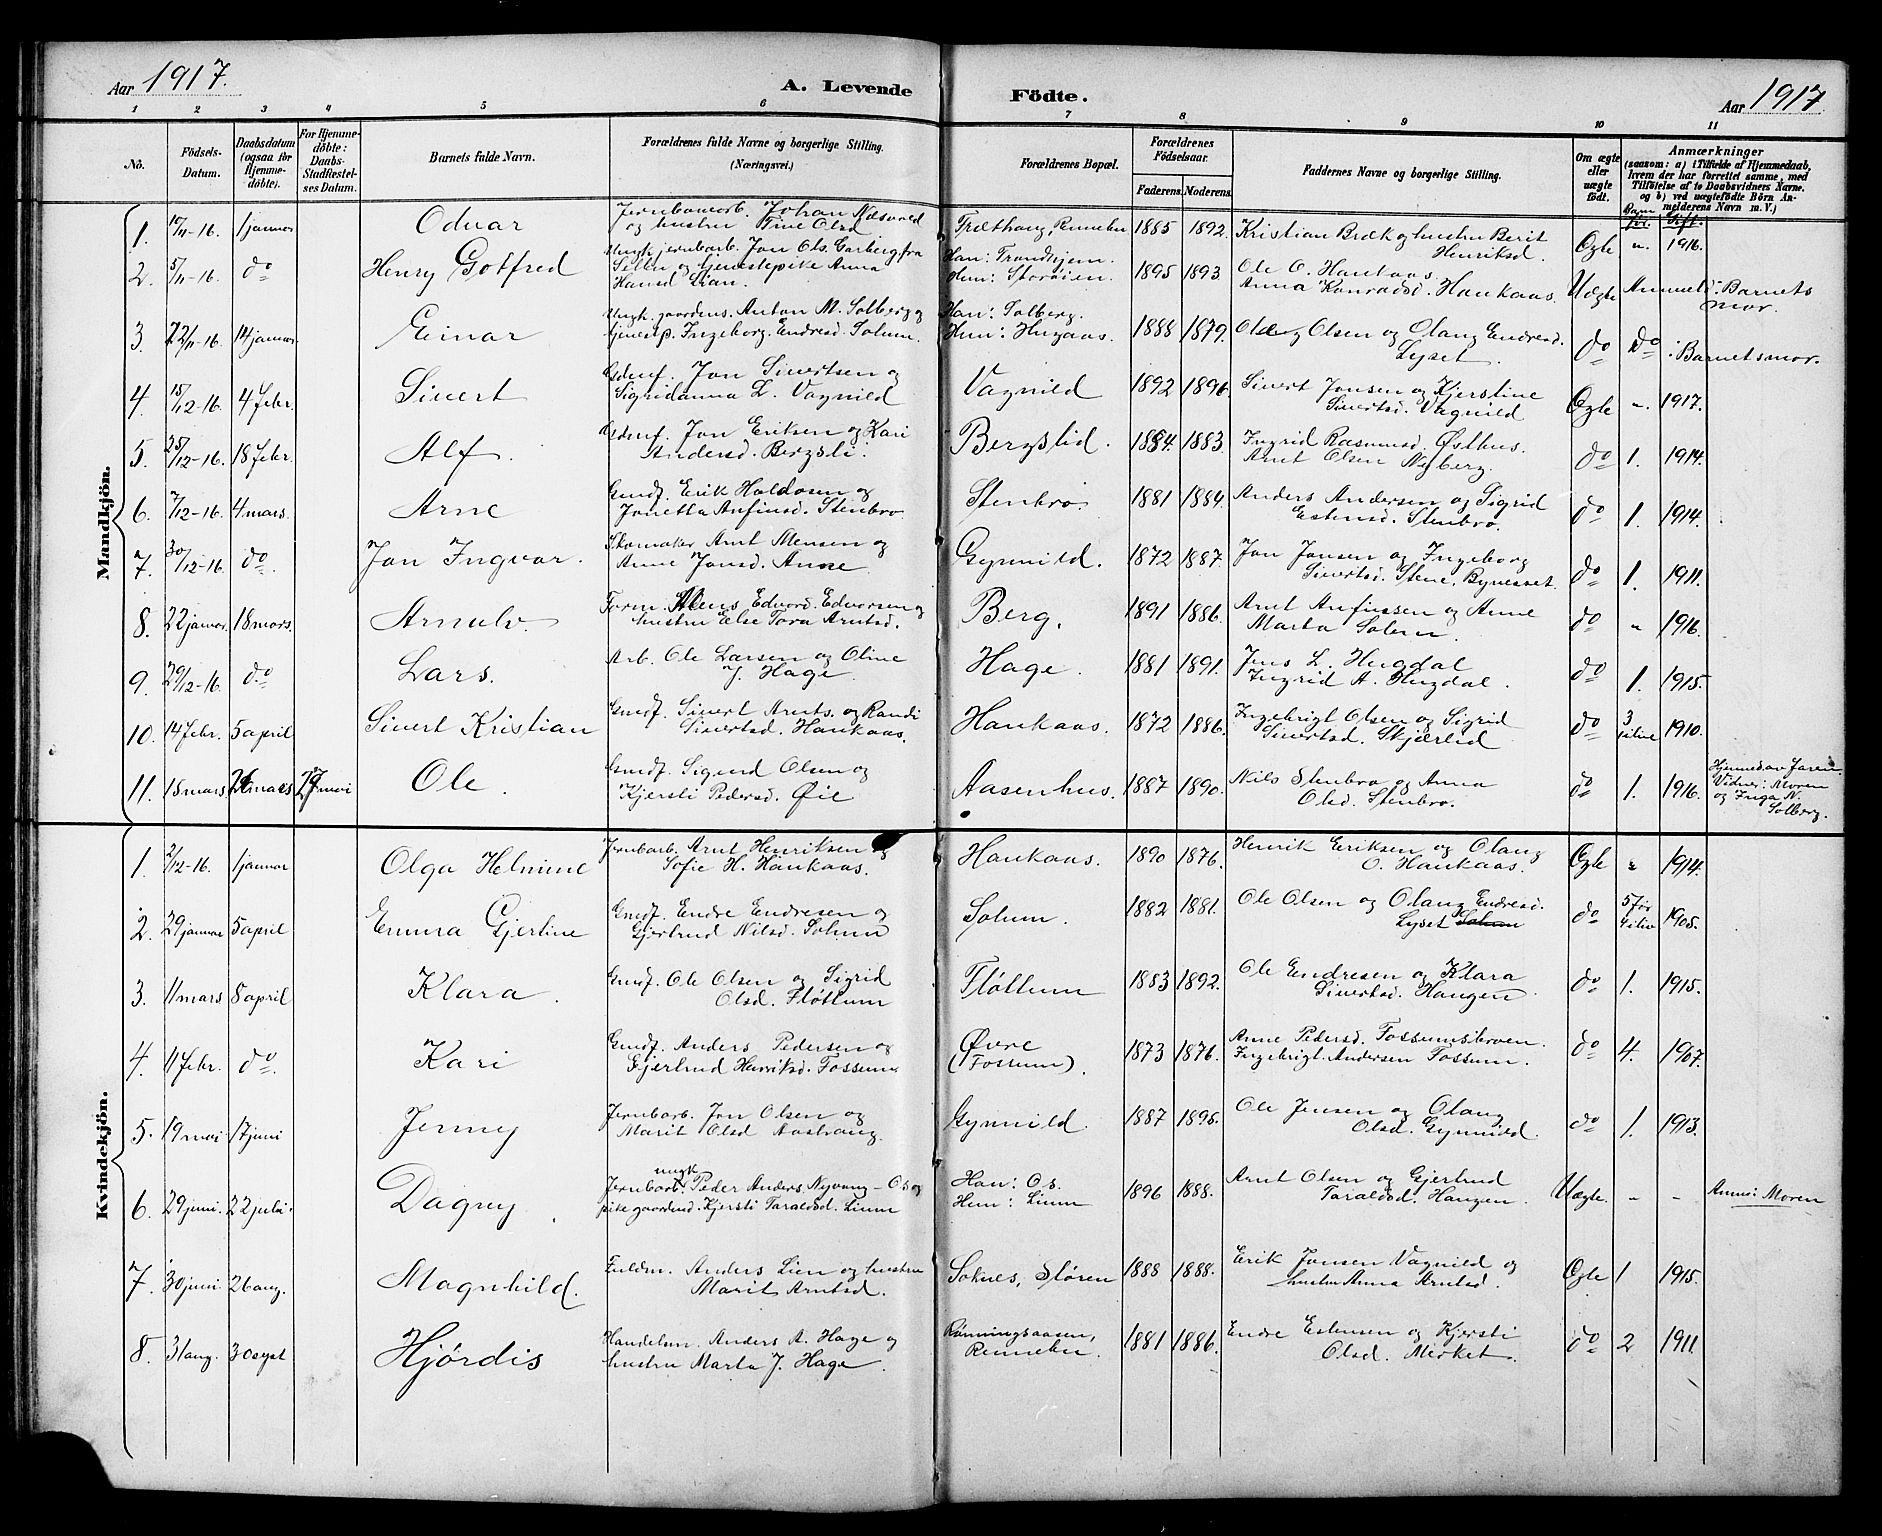 Aar 1917.
A. Levende Födte.
Aar 1917
1 2 3 4 5 6 7 8 9 10 11
No.
Födsels-Datum.
Daabsdatum (ogsaa för Hjemme-döbte).
For Hjemme-döbte: Daabs-Stadfæstel-ses Datum.
Barnets fulde Navn.
Forældrenes fulde Navne og borgerlige Stilling. (Næringsvei.)
Forældrenes Bopæl.
Forældrenes Födselsaar.
Faderens. Moderens.
Faddernes Navne og borgerlige Stilling.
Om ægte eller uægte födt.
Anmærkninger
(saasom: a) i Tilfælde af Hjemmedaab, hvem der har forrettet samme, med Tilföielse af to Daabsvidners Navne. og b) ved uægtefödte Börn An-melderens Navn m. V.)
Barn før. Gift.
Mandkjön.
1. 10/11-16. 1 januar Odvar
Jernbanearb. Johan Næsvold
og hustru Trine Olsd
Træthaug, Rennebu 1885 1892. Kristian Bræk og hustru Berit
Henriksd. Ægte " 1916.
2. 5/11-16. do Henry Gotfred
Ungk. jernbarb. Jon Ols. Garberg fra
Selbu og tjenestepike Anna
Hansd Kran.
Han: Trondhjem.
Hun: Storøien. 1895 1893 Ole O. Haukaas.
Anna Konradsd. Haukaas. Uægte Anmeld: Barnets
mor.
3. 22/11-16. 14 januar Einar
Ungk. gaardens. Anton M. Solberg og
tjenestp. Ingeborg Endresd. Solum.
Han: Solberg.
Hun: Hugaas. 1888 1879. Ole Olsen og Olaug Endresd.
Lyset. do do : Barnets mor.
4. 15/12-16. 4 febr. Sivert
Gdmf. Jon Sivertsen og
Sigridanna L. Vagnild
Vagnild 1892 1896. Sivert Jonsen og Kjerstine
Sivertsd. Vagnild Ægte " 1917.
5. 25/12-16. 18 febr. Alf.
Gdmf. Jon Eriksen og Kari
Andersd. Bergsli.
Bergslid. 1884. 1883. Ingrid Rasmusd. Østhus.
Arnt Olsen Nyberg. do 1. 1914.
6. 7/12-16. 4 mars. Arne
Gmdf. Erik Haldosen og
Jonetta Anfinsd. Stenbro
Stenbro 1881 1884. Anders Andersen og Sigrid
Estensd. Stenbro. do 1. 1914.
7. 30/12-16. do. Jon Ingvar.
Skomaker Arnt Mensen og
Anne Jonsd. Aune
Gynnild. 1872 1887. Jon Jonsen og Ingeborg
Sivertsd. Stene. Bynesset. do 1. 1911.
8. 22 januar. 18 mars. Arnulv.
Form. Mens Edvard Edvarsen og
hustru Else Tora Arntsd.
Berg. 1891 1886. Arnt Anfinssen og Anne
Marta Solem. do " 1916.
9. 29/12-16. do. Lars.
Arb. Ole Larsen og Oline
J. Hage.
Hage. 1881 1891. Jens L. Hugdal
Ingrid A. Hugdal. do 1. 1915.
10. 14 febr. 5 april Sivert Kristian
Gmdf. Sivert Arnts. og Randi
Sivertsd. Haukaas.
Haukaas. 1872 1886. Ingebrigt Olsen og Sigrid
Sivertsd. Skjerlid do 3 ilive 1910.
11. 18 mars 26 mars 27 mai Ole.
Gmdf. Sigurd Olsen og
Kjersti Pedersd. Øie
Aasenhus. 1887 1890. Nils Stenbro og Anna
Olsd. Stenbro. do 1. 1916.
Hjemmed. av Faren.
Vidner: Moren
og Inga N.
Solberg.
Kvindekjön.
1. 2/12-16. 1 januar Olga Helmine
Jernbarb. Arnt Henriksen og
Sofie H. Haukaas.
Haukaas. 1890 1876. Henrik Eriksen og Olaug
O. Haukaas. Ægte " 1914.
2. 29 januar 5 april Emma Gjertine
Gmdf. Endre Endresen og
Gjertrud Nilsd. Solum
Solum. 1882 1881. Ole Olsen og Olaug Endresd.
Lyset Solum do 5 før 4 ilive 1905.
3. 11 mars 8 april Klara.
Gmdf. Ole Olsen og Sigrid
Olsd. Fløttum
Fløttum 1883 1892. Ole Endresen og Klara
Sivertsd. Haugen. do 1. 1915.
4. 11 febr. do. Kari
Gmdf. Anders Pedersen og
Gjertrud Henriksd. Fossum
Øvre
(Fossum). 1873 1876. Anne Pedersd. Fossumsbroen.
Ingebrigt Andersen Fossum. do 4. 1907.
5. 19 mai 17 juni Jenny
Jernbarb. Jon Olsen og
Marit Olsd Aashaug.
Gynnild. 1887 1895. Ole Jensen og Olaug
Olsd. Gynnild. do 1. 1913.
6. 29 juni. 22 juli. Dagny.
ungk
Jernbarb. Peder Anders. Nyvang - Os og
pike gaardmd. Kjersti Taraldsd. Linm
Han: Os.
Hun: Linm 1896 1888. Arnt Olsen og Gjertrud
Taraldsd. Haugen. Uægte. - - Anm: Moren
7. 30 juni 26 aug. Magnhild.
Fuldm. Anders Lien og hustru
Marit Arntsd.
Soknes, Støren 1888 1888. Erik Jonsen Vagnild og
hustru Anna Arntsd. Ægte 1 1915.
8. 31 aug. 30 sept Hjørdis
Handelsm. Anders A. Hage og
hustru Marta J. Hage.
Rønningsaasen,
Rennebu. 1881 1886. Endre Estensen og Kjersti
Olsd. Mirket. do 2 1911.